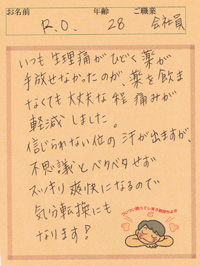 お名前 年齢 ご職業
R.O. 28 会社員
いつも生理痛がひどく薬が
手放せなかったのが、薬を飲ま
なくても大丈夫な程 痛みが
軽減しました。
信じられない位の汗が出ますが、
不思議とベタベタせず
スッキリ爽快になるので
気分転換にも
なります!